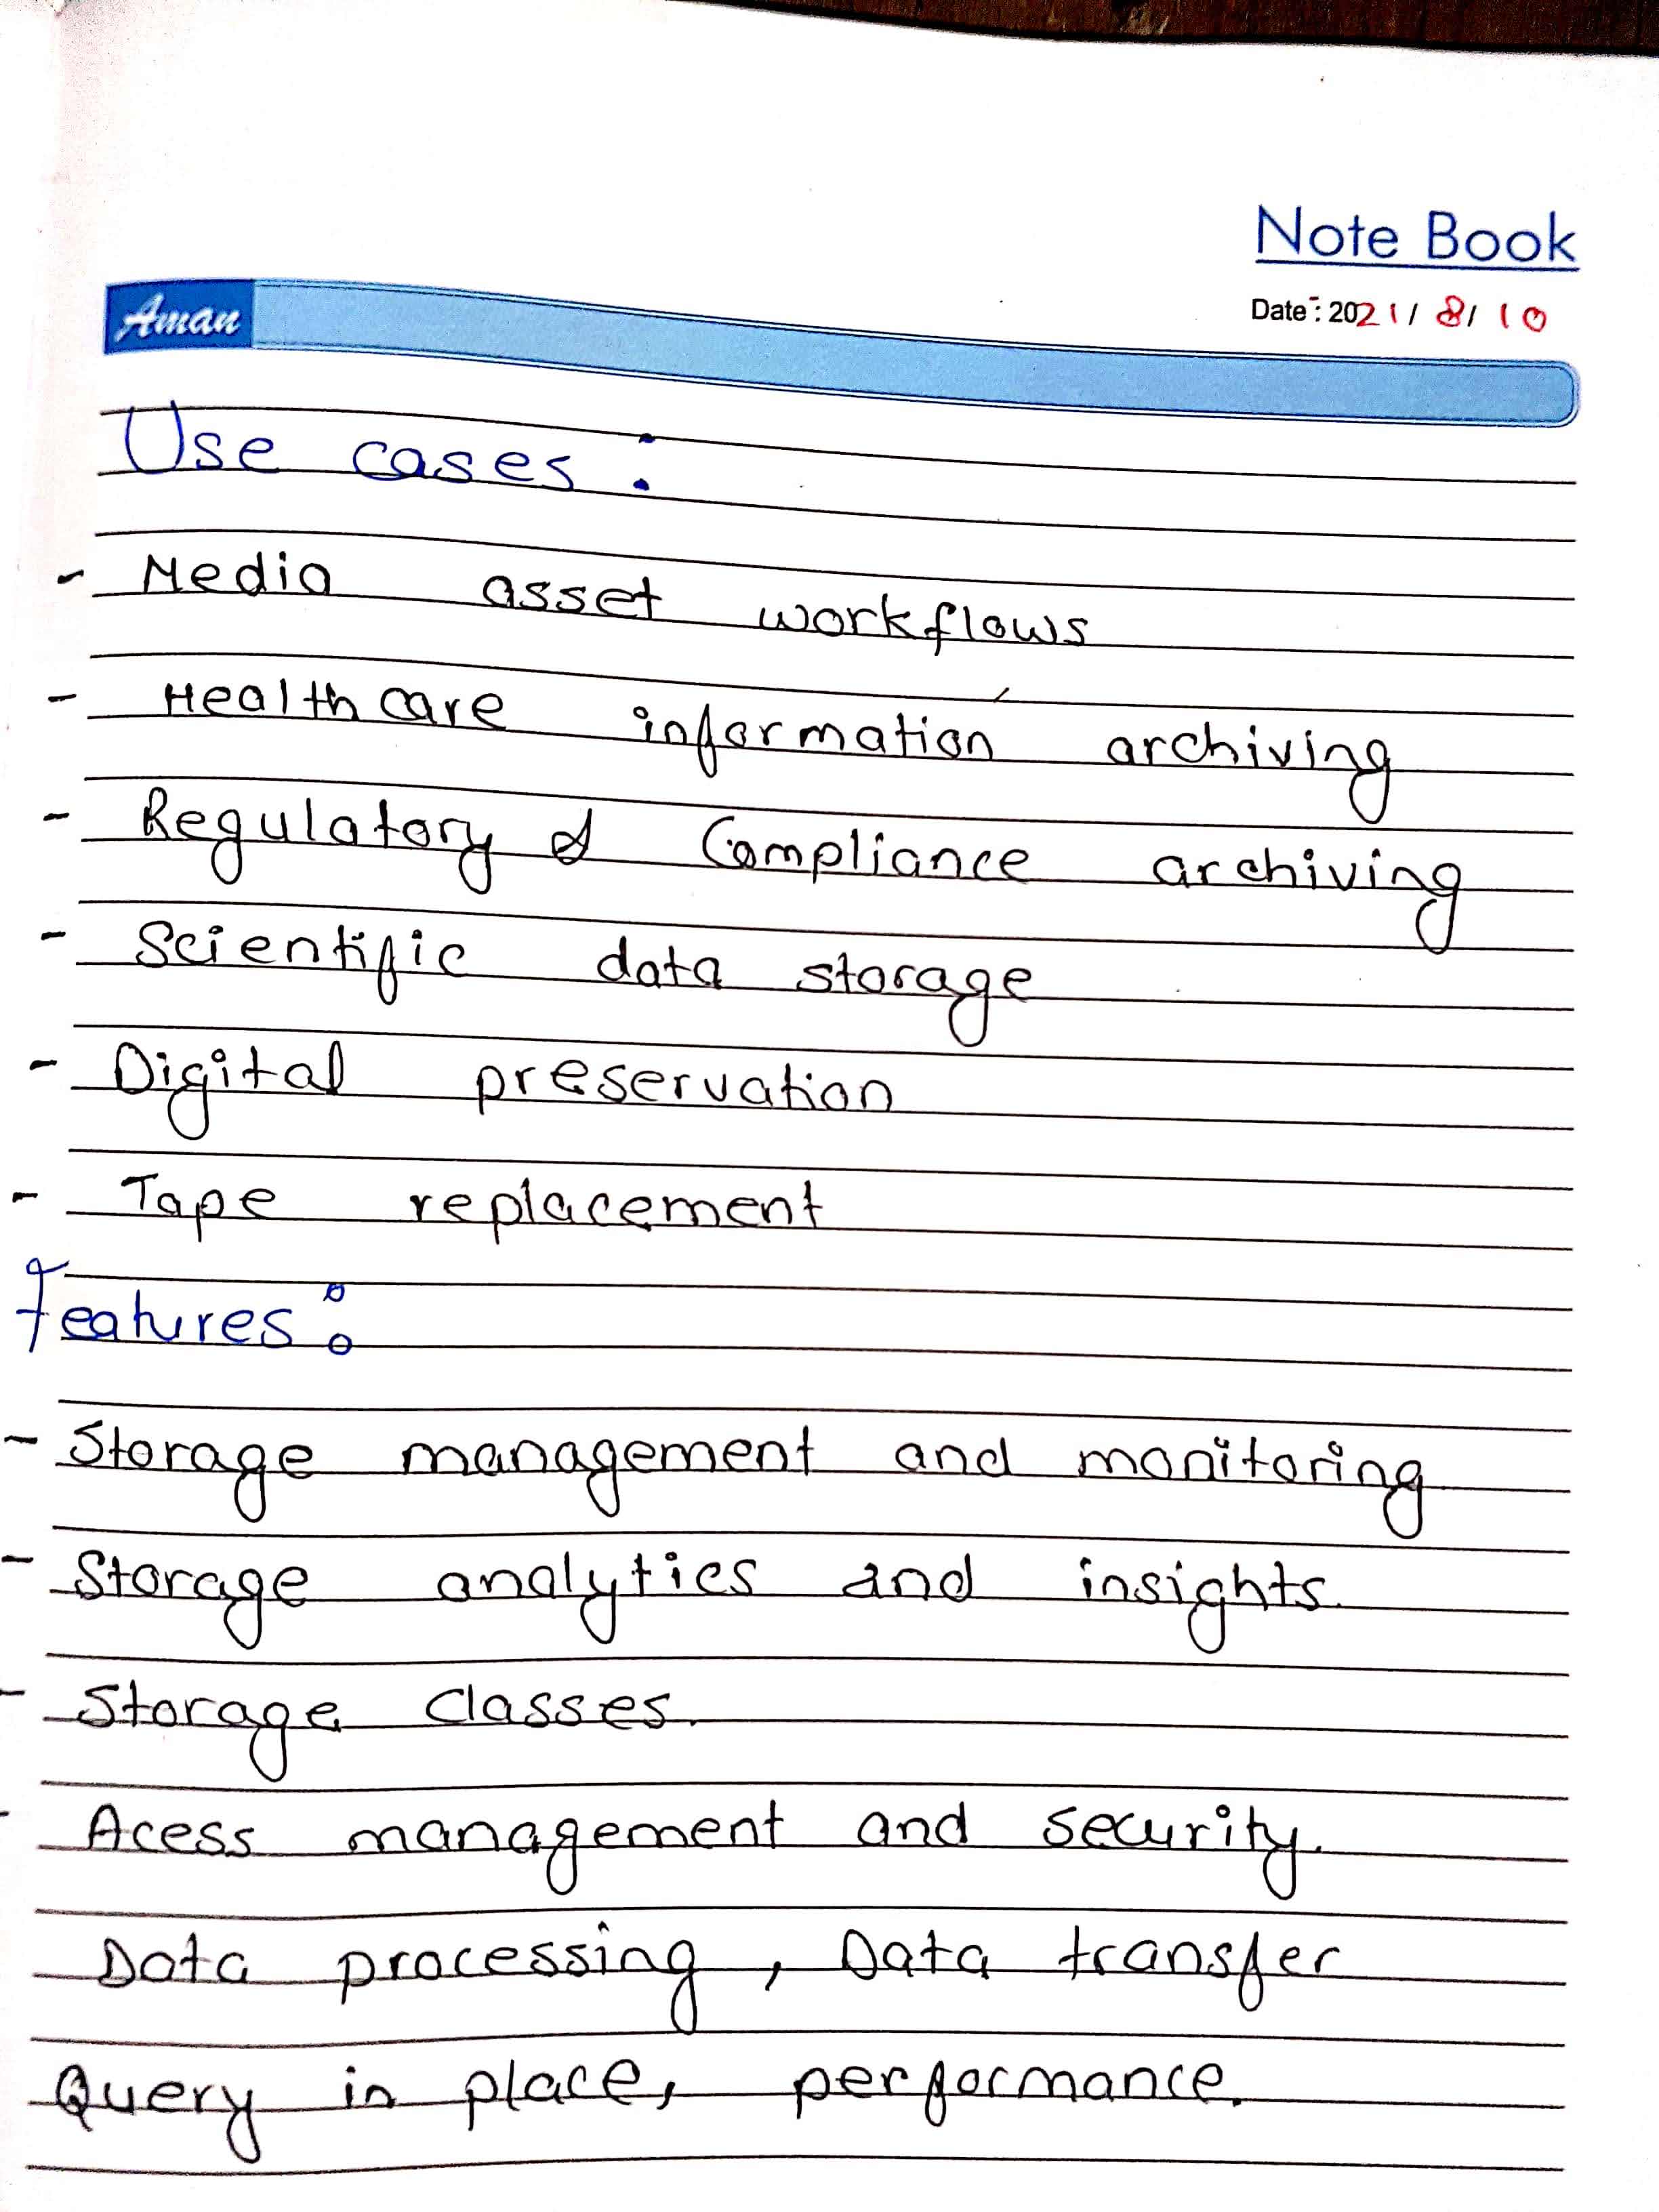 Note Book
Date: 2021/8/10
Aman
Use cases:
- Media asset workflows
- Healthcare information archiving
- Regulatory & Compliance archiving
- Scientific data storage
- Digital preservation
- Tape replacement
features:
- Storage management and monitoring
- Storage analytics and insights.
- Storage classes.
- Acess management and security.
Data processing, Data transfer
Query in place, performance.